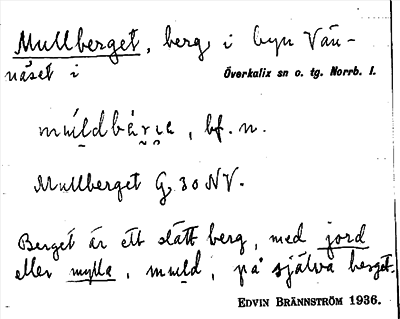 Mullberget, berg, i byn Vän-
näset i
Överkalix sn o. tg. Norrb. l.
bf. n.
Mullberget G, 30 NV.
Berget är ett slätt berg, med jord
eller mylla, på själva berget.
EDVIN BRÄNNSTRÖM 1936.